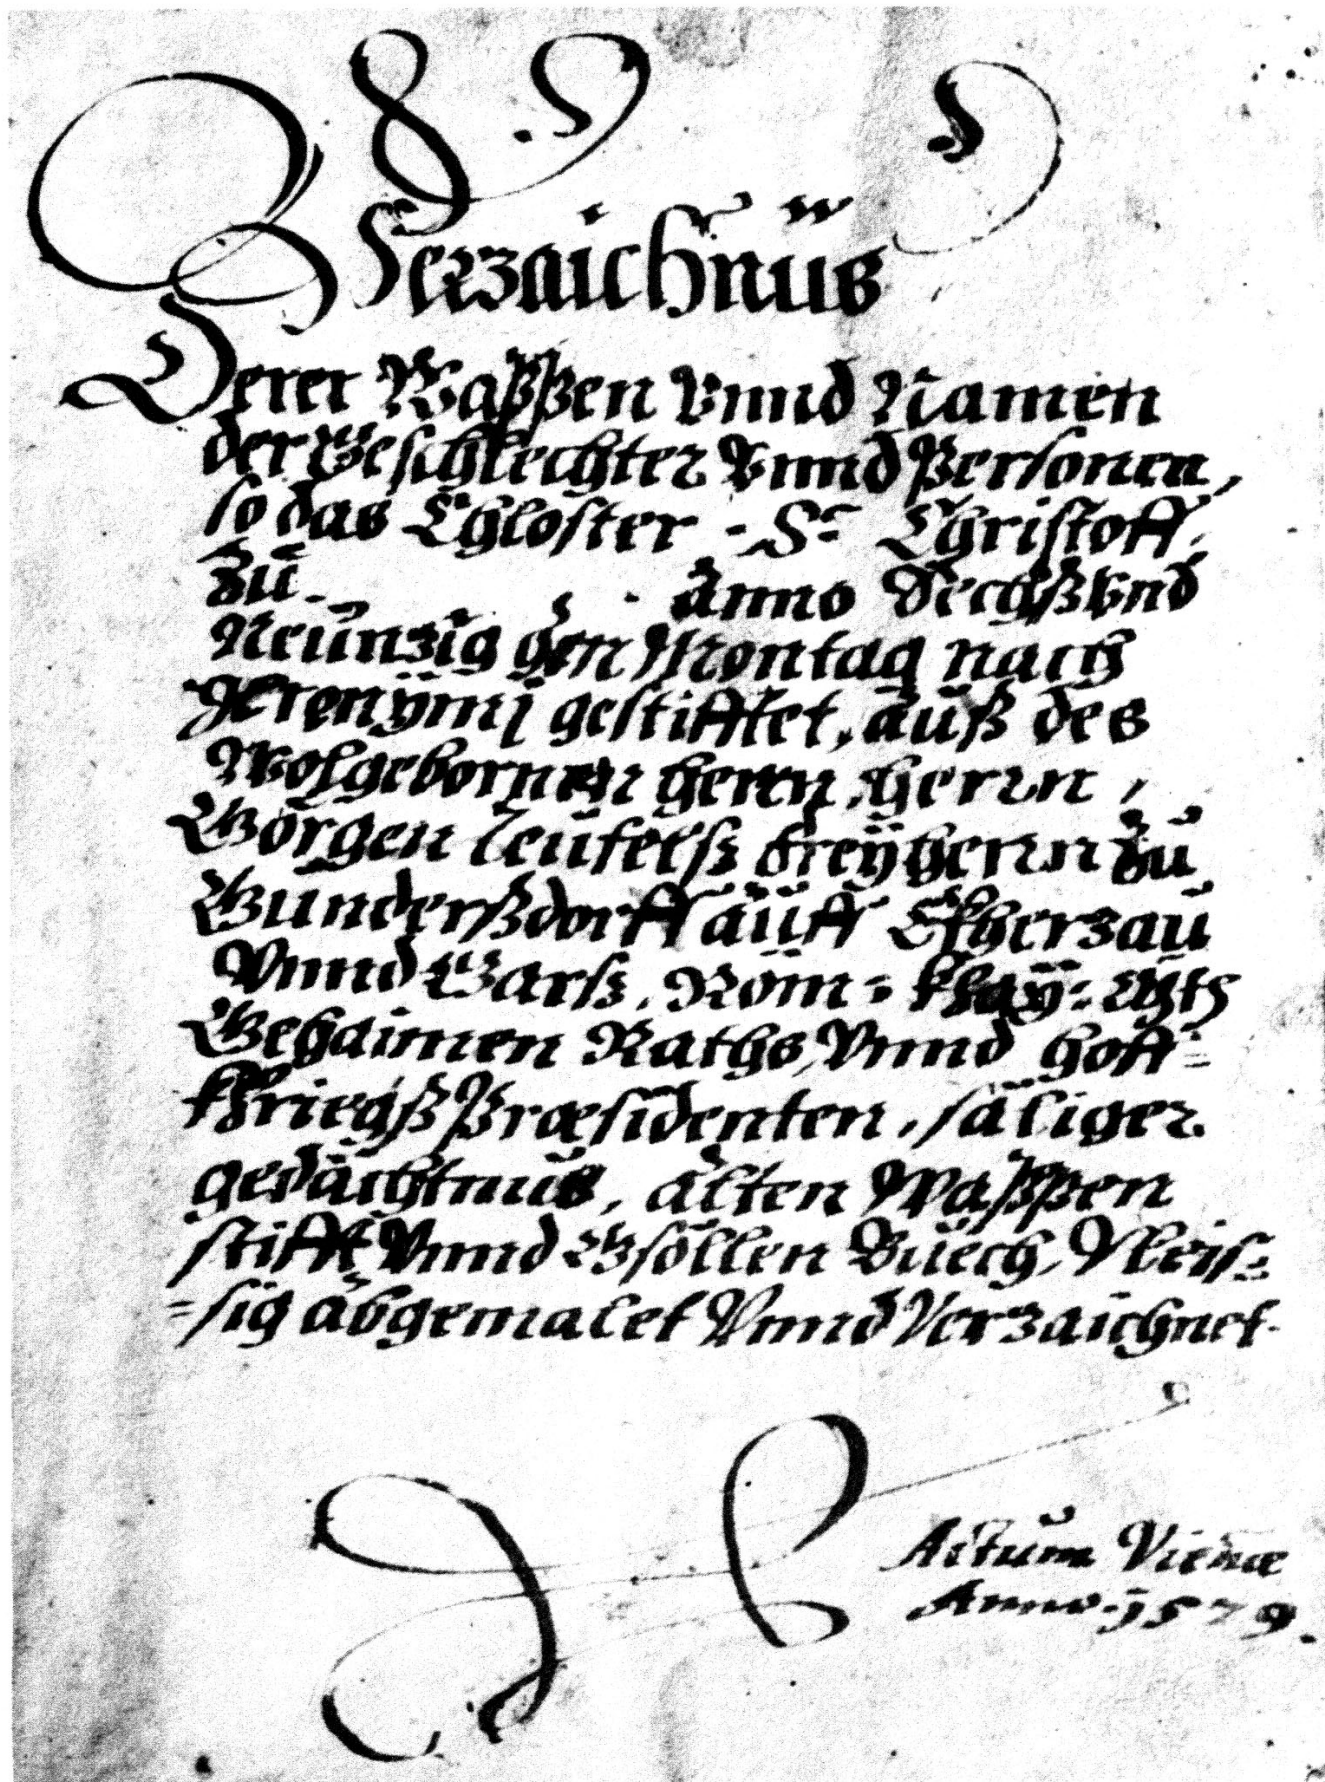 Verzaichnüs
Derer Wappen Vnnd Namen
der Geschlechter Vnnd Personen,
so das Chloster - St Christoff,
zu - Anno Sechßvnd
Neünzig den Montag nach
Jeronÿmj gestifftet, auß des
Wolgebornen herrn, herrn,
Görgen Teufelß freÿherrn zu
Gunderßdorff auff Ekherzau
Vnnd Garß, Röm: Khaÿ: Mts
Gehaimen Raths, Vnnd hoff=
Khriegß Præsidenten, säliger
gedächtnus, alten Wappen
stifft Vnnd Gsöllen Buech, Vleis=
=sig abgemalet Vnnd Verzaichnet.
Actum Vienæ
Anno 1579.